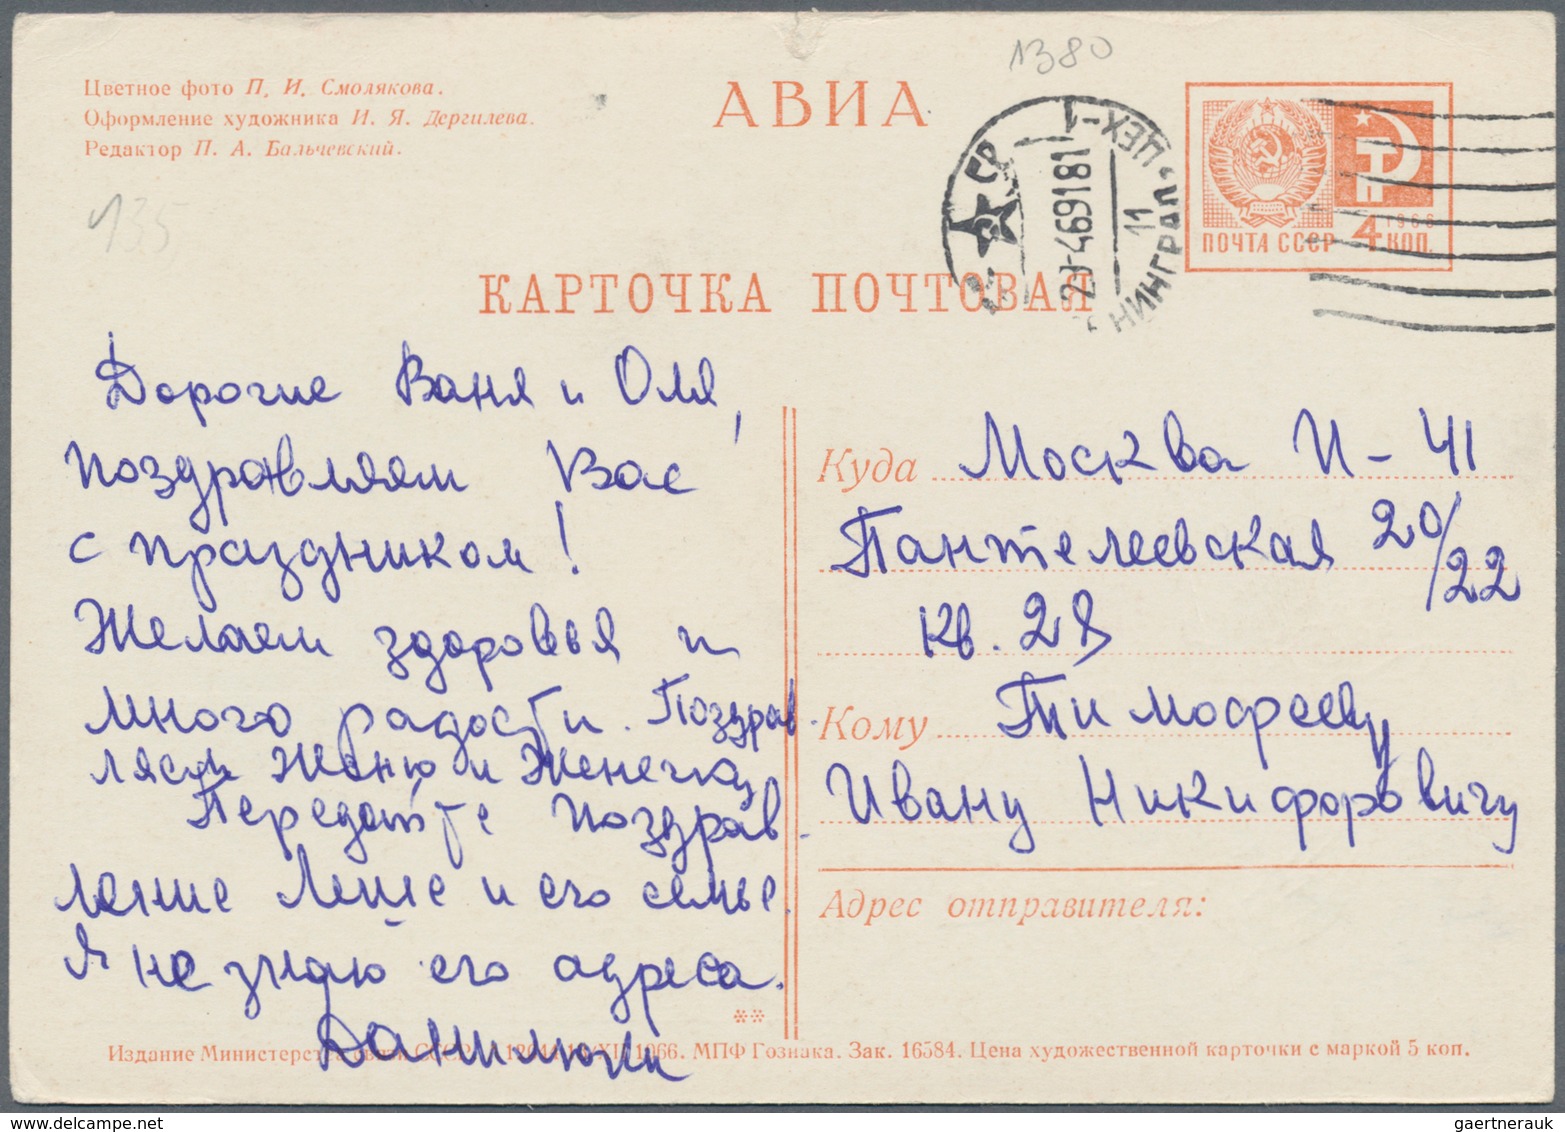 Цветное фото П. И. Смолякова.
Оформление художника И. Я. Дергилева.
Редактор П. А. Бальчевский.
АВИА
1380
135
ПОЧТА СССР
1966
4 КОП.
ЦЕХ-1
11
КАРТОЧКА ПОЧТОВАЯ
Дорогие Ваня и Оля,
поздравляем Вас
с праздником!
Желаем здоровья и
много радости. Поздрав-
ляем Женю и Женечку
Передайте поздрав-
ление Леше и его семье.
Я не знаю его адреса.
Куда Москва И-41
Пантелеевская 20/22
кв. 28
Кому Тимофееву
Ивану Никифоровичу
Адрес отправителя:
Издание Министерства связи СССР. 1966. МПФ Гознака. Зак. 16584. Цена художественной карточки с маркой 5 коп.
gaertnerauk